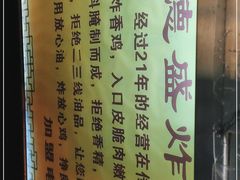 德盛炸
经过21年的经营在传
炸香鸡，入口皮脆肉嫩
料腌制而成，拒绝香精，
，拒绝二三线油品，让您
用放心油，炸放心鸡，
加盟电